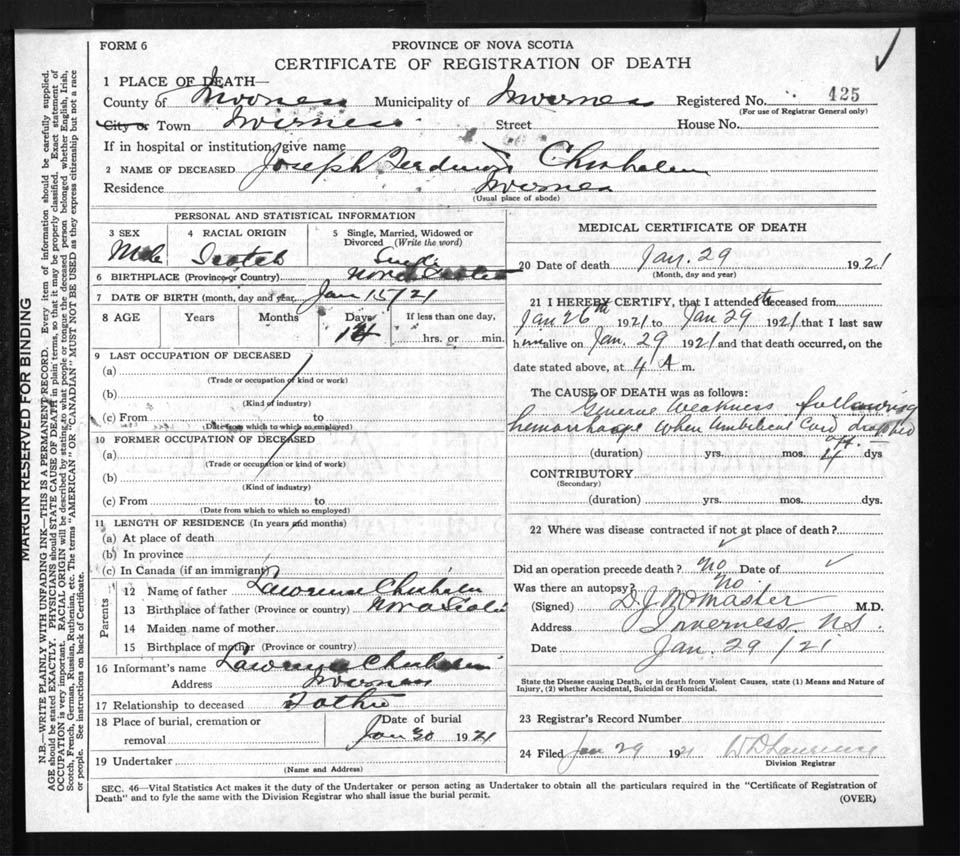 FORM 6
PROVINCE OF NOVA SCOTIA
CERTIFICATE OF REGISTRATION OF DEATH
1 PLACE OF DEATH—
County of Inverness Municipality of Inverness Registered No. 425
(For use of Registrar General only)
City or Town Inverness Street House No.
If in hospital or institution, give name
2 NAME OF DECEASED Joseph Chisholm
Residence Inverness
(Usual place of abode)
PERSONAL AND STATISTICAL INFORMATION
3 SEX 4 RACIAL ORIGIN 5 Single, Married, Widowed or Divorced (Write the word)
Male Scotch Single
6 BIRTHPLACE (Province or Country) Nova Scotia
7 DATE OF BIRTH (month, day and year) Jan 15/21
8 AGE Years Months Days If less than one day,
14 hrs. or min.
9 LAST OCCUPATION OF DECEASED
(a)
(Trade or occupation or kind or work)
(b)
(Kind of industry)
(c) From to
(Date from which to which so employed)
10 FORMER OCCUPATION OF DECEASED
(a)
(Trade or occupation or kind of work)
(b)
(Kind of industry)
(c) From to
(Date from which to which so employed)
11 LENGTH OF RESIDENCE (In years and months)
(a) At place of death
(b) In province
(c) In Canada (if an immigrant)
Parents
12 Name of father Lawrence Chisholm
13 Birthplace of father (Province or country) Nova Scotia
14 Maiden name of mother
15 Birthplace of mother (Province or country)
16 Informant's name Lawrence Chisholm
Address Inverness
17 Relationship to deceased Father
18 Place of burial, cremation or removal Date of burial
Jan 30 1921
19 Undertaker
(Name and Address)
MEDICAL CERTIFICATE OF DEATH
20 Date of death Jan. 29 1921
(Month, day and year)
21 I HEREBY CERTIFY, that I attended the deceased from
Jan 26th 1921 to Jan 29 1921 that I last saw
him alive on Jan. 29 1921 and that death occurred, on the
date stated above, at 4 A m.
The CAUSE OF DEATH was as follows:
General Weakness following
hemorrhage when Umbilical Cord dropped
off.
(duration) yrs. mos. 4 dys
CONTRIBUTORY
(Secondary)
(duration) yrs. mos. dys.
22 Where was disease contracted if not at place of death?
Did an operation precede death? No Date of
Was there an autopsy? No
(Signed) D.J. McMaster M.D.
Address Inverness N.S.
Date Jan. 29/21
State the Disease causing Death, or in death from Violent Causes, state (1) Means and Nature of
Injury, (2) whether Accidental, Suicidal or Homicidal.
23 Registrar's Record Number
24 Filed Jan 29 1921 W D Lawrence
Division Registrar
SEC. 46—Vital Statistics Act makes it the duty of the Undertaker or person acting as Undertaker to obtain all the particulars required in the "Certificate of Registration of
Death" and to fyle the same with the Division Registrar who shall issue the burial permit. (OVER)
MARGIN RESERVED FOR BINDING
N.B.—WRITE PLAINLY WITH UNFADING INK—THIS IS A PERMANENT RECORD. Every item of information should be carefully supplied.
AGE should be stated EXACTLY. PHYSICIANS should STATE CAUSE OF DEATH in plain terms, so that it may be properly classified. Exact statement of
OCCUPATION is very important. RACIAL ORIGIN will be described by stating to what people or tongue the deceased person belonged whether English, Irish,
Scotch, French, German, Russian, Ruthenian, etc. The terms "AMERICAN" OR "CANADIAN" MUST NOT BE USED as they express citizenship but not a race
or people. See instructions on back of Certificate.